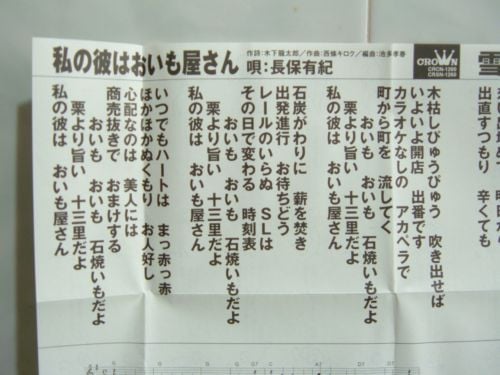 私の彼はおいも屋さん
作詩:木下龍太郎/作曲:西條キロク/編曲:池多孝春
唄:長保有紀
CROWN
CRCN-1260
CRSN-1260
出直すつもり 辛くても
木枯しぴゅうぴゅう 吹き出せば
いよいよ開店 出番です
カラオケなしの アカペラで
町から町を 流してく
おいも おいも 石焼いもだよ
栗より旨い 十三里だよ
私の彼は おいも屋さん
石炭がわりに 薪を焚き
出発進行 お待ちどう
レールのいらぬ SLは
その日で変わる 時刻表
おいも おいも 石焼いもだよ
栗より旨い 十三里だよ
私の彼は おいも屋さん
いつでもハートは まっ赤っ赤
ほかほかぬくもり お人好し
心配なのは 美人には
商売抜きで おまけする
おいも おいも 石焼いもだよ
栗より旨い 十三里だよ
私の彼は おいも屋さん